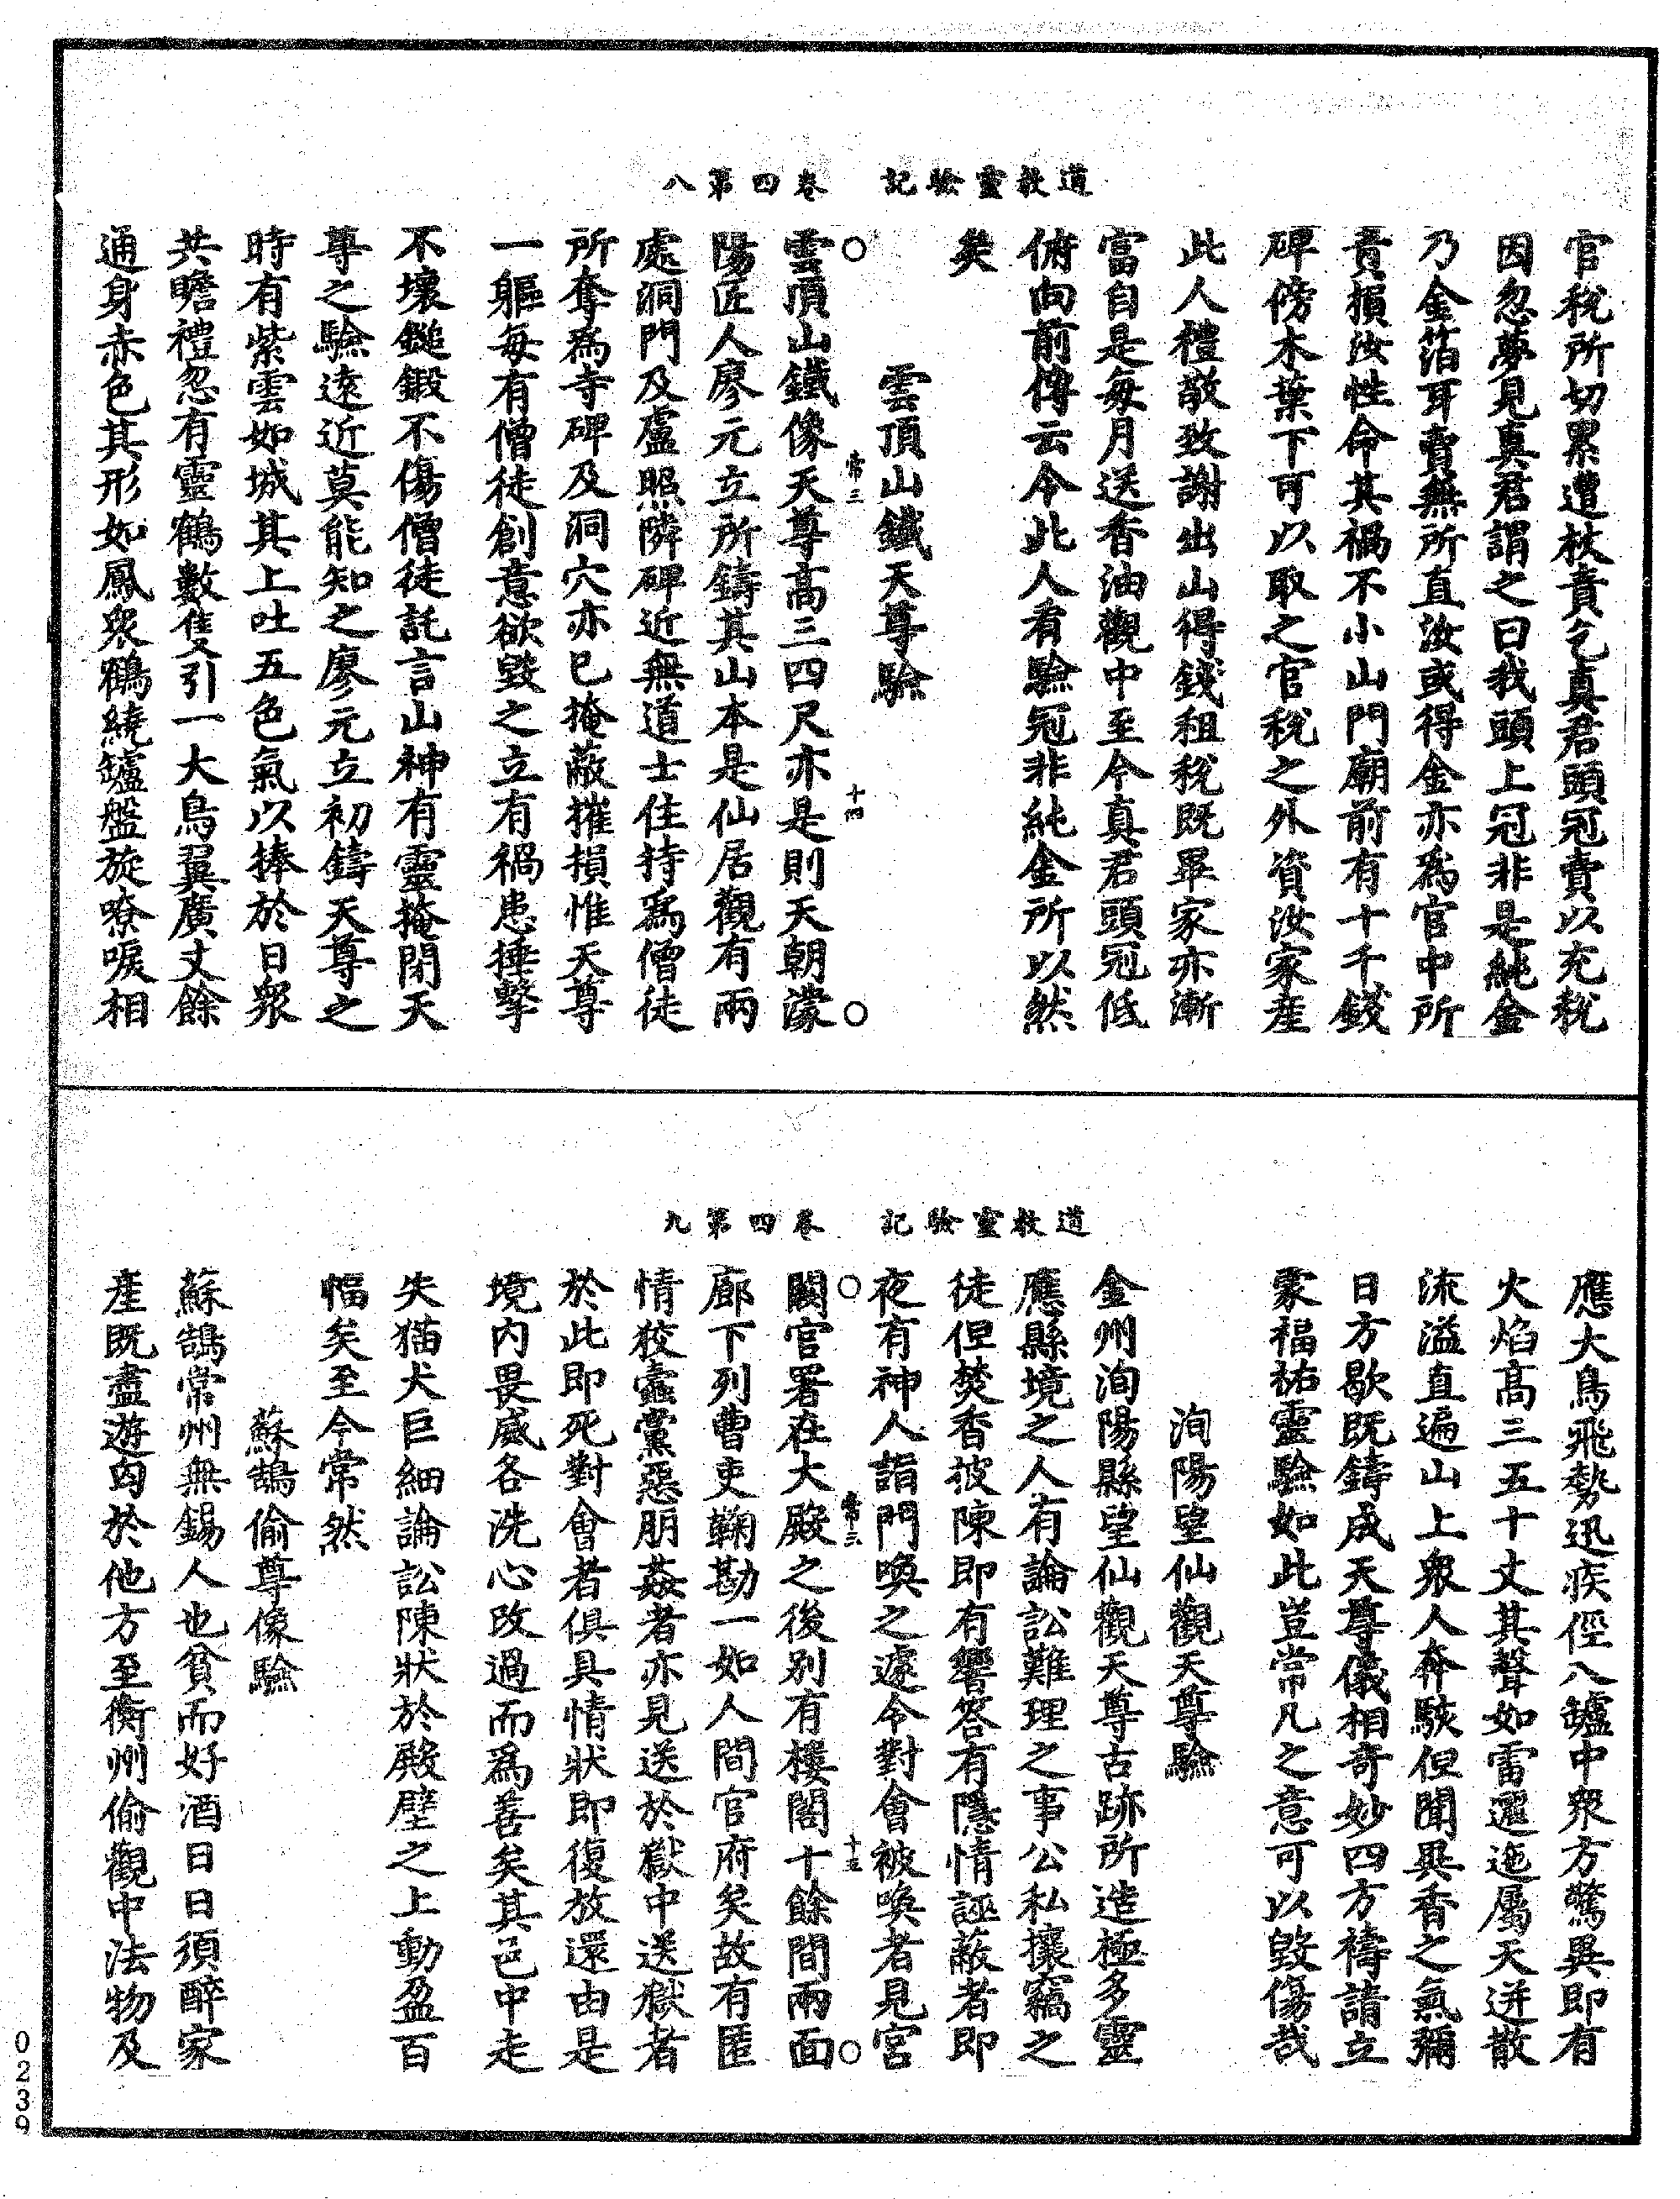 道教靈驗記　卷四第八
官稅所切累遭杖責乞真君頭冠賣以充稅
因忽夢見真君謂之曰我頭上冠非是純金
乃金箔耳賣無所直汝或得金亦為官中所
責損汝性命其禍不小山門廟前有十千錢
碑傍木葉下可以取之官稅之外資汝家產
此人禮敬致謝出山得錢租稅既畢家亦漸
富自是每月送香油觀中至今真君頭冠低
俯向前傳云今此人看驗冠非純金所以然
矣
雲頂山鐵天尊驗
常三　十四
雲頂山鐵像天尊高三四尺亦是則天朝濛
陽匠人廖元立所鑄其山本是仙居觀有兩
處洞門及盧照隣碑近無道士住持為僧徒
所奪為寺碑及洞穴亦已掩蔽摧損惟天尊
一軀每有僧徒創意欲毀之立有禍患捶擊
不壞鎚鍛不傷僧徒託言山神有靈掩閉天
尊之驗遠近莫能知之廖元立初鑄天尊之
時有紫雲如城其上吐五色氣以捧於日眾
共瞻禮忽有靈鶴數隻引一大鳥翼廣丈餘
通身赤色其形如鳳眾鶴繞罏盤旋嘹唳相
道教靈驗記　卷四第九
應大鳥飛勢迅疾徑入罏中眾方驚異即有
火焰高三五十丈其聲如雷邐迤屬天迸散
流溢直遍山上眾人奔駭但聞異香之氣彌
日方歇既鑄成天尊儀相奇妙四方禱請立
蒙福祐靈驗如此豈常凡之意可以毀傷哉
洵陽望仙觀天尊驗
金州洵陽縣望仙觀天尊古跡所造極多靈
應縣境之人有論訟難理之事公私攘竊之
徒但焚香披陳即有響答有隱情誣蔽者即
夜有神人詣門喚之遽令對會被喚者見宮
常三　十五
闕官署在大殿之後別有樓閣十餘間兩面
廊下列曹吏鞫勘一如人間官府矣故有匿
情狡蠹黨惡朋姦者亦見送於獄中送獄者
於此即死對會者俱具情狀即復放還由是
境內畏威各洗心改過而為善矣其邑中走
失猫犬巨細論訟陳狀於殿壁之上動盈百
幅矣至今常然
蘇鵠偷尊像驗
蘇鵠常州無錫人也貧而好酒日日須醉家
產既盡遊匃於他方至衡州偷觀中法物及
0239